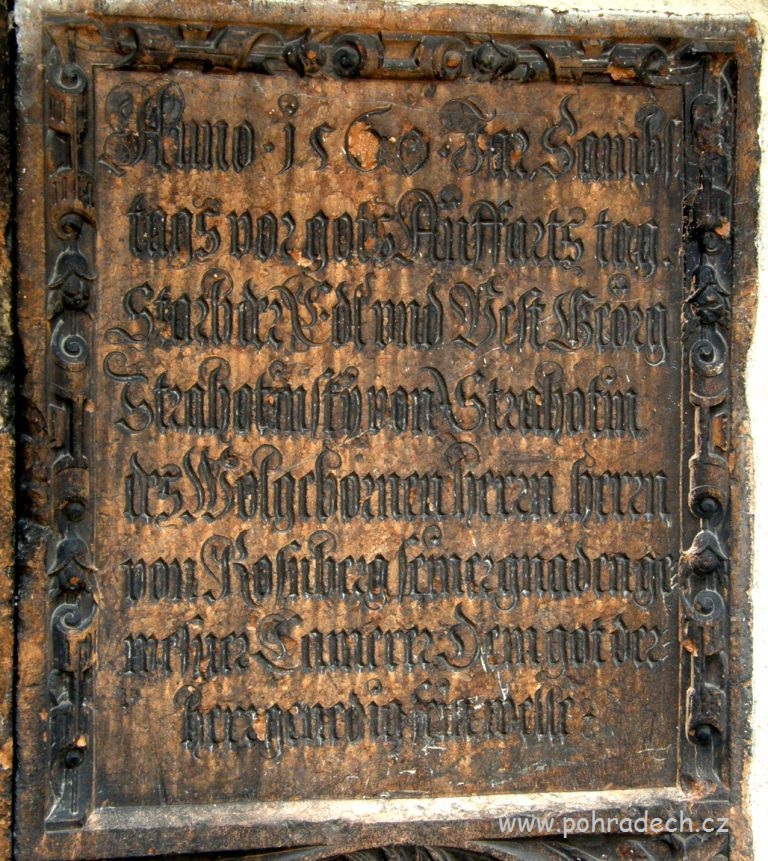 Anno · 1560 · Jar Sambs
tags vor gots Auffarts tag .
Starb der Edl und Vest Georg
Strahotinsky von Strahotin
des Wolgebornen herrn herrn
von Rosnberg seiner gnaden ge
wesner Camerer Dem got der
herr genedig sein welle
www.pohradech.cz